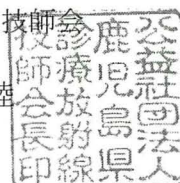 技師会
公益社団法人
鹿児島県
診療放射線
技師会長印